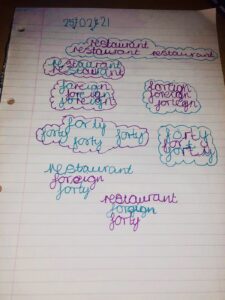 25/02/21
restaurant
restaurant restaurant
restaurant
restaurant
foreign
foreign
foreign
foreign
foreign
foreign
forty
forty forty
forty
forty
forty
forty
restaurant
foreign
forty
restaurant
foreign
forty